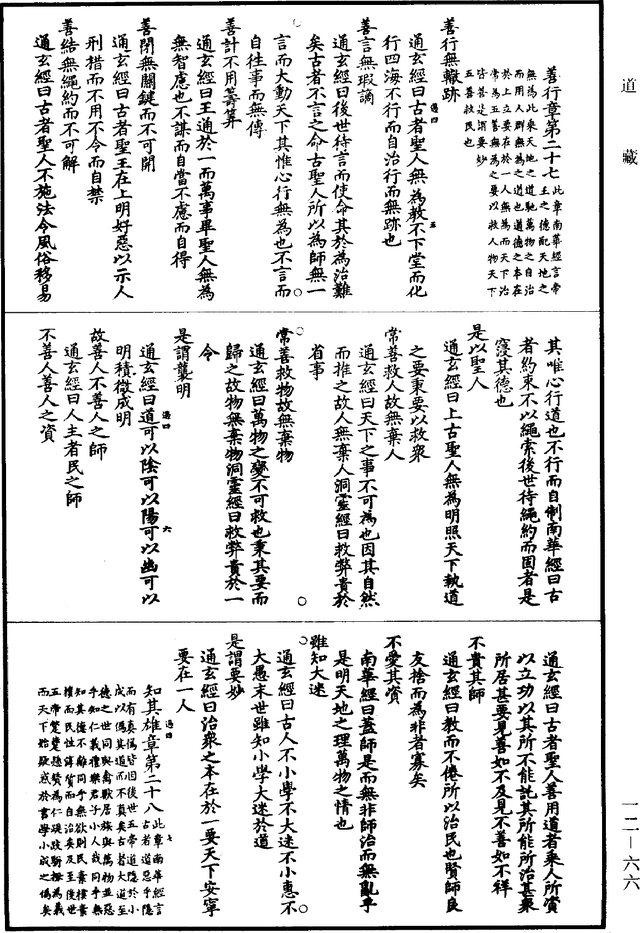 道藏
善行章第二十七
此章南華經言帝
王之德配天地之
無為此乘天地之道馳萬物之自治
而用人群無為之道也道德之本在
於上立要在於一人無為而天下治
常為五善無為之要以救人物天下
皆善是謂要妙
五善救民也
善行無轍跡
通玄經曰古者聖人無為教不下堂而化
行四海不行而自治行而無跡也
善言無瑕讁
通玄經曰後世待言而使命其於為治難
矣古者不言之命古聖人所以為師無一
言而大動天下其惟心行無為也不言而
自往事而無傳
善計不用籌筭
通玄經曰王通於一而萬事畢聖人無為
無智慮也不謀而自當不慮而自得
善閉無關鍵而不可開
通玄經曰古者聖王在上明好惡以示人
刑措而不用不令而自禁
善結無繩約而不可解
通玄經曰古者聖人不施法令風俗移易
其唯心行道也不行而自制南華經曰古
者約束不以繩索後世待繩約而固者是
寖其德也
是以聖人
通玄經曰上古聖人無為明照天下執道
之要秉要以救衆
常善救人故無棄人
通玄經曰天下之事不可為也因其自然
而推之故人無棄人洞靈經曰救弊貴於
省事
常善救物故無棄物
通玄經曰萬物之變不可救也秉其要而
歸之故物無棄物洞靈經曰救弊貴於一
令
是謂襲明
通玄經曰道可以陰可以陽可以幽可以
明積微成明
故善人不善人之師
通玄經曰人主者民之師
不善人善人之資
通玄經曰古者聖人善用道者乘人所資
以立功以其所不能託其所能所治甚衆
所居甚要見善如不及見不善如不祥
不貴其師
通玄經曰教而不倦所以治民也賢師良
友捨而為非者寡矣
不愛其資
南華經曰蓋師是而無非師治而無亂乎
是明天地之理萬物之情也
雖知大迷
通玄經曰古人不小學不大迷不小惠不
大愚末世雖知小學大迷於道
是謂要妙
通玄經曰治衆之本在於一要天下安寧
要在一人
知其雄章第二十八
此章南華經言
古者道忌乎隱
而有真偽皆因後世五帝道隱於小
成以偽其道而不真矣古者大道至
德之世同與禽獸居族與萬物並惡
乎知仁義禮樂君子小人哉同乎無
知其德不離同乎無欲則民素樸素
樸而民性得質而自治矣及至後世
五帝蹩躠為仁踶跂為義
而天下始疑惑於書學小成之偽矣